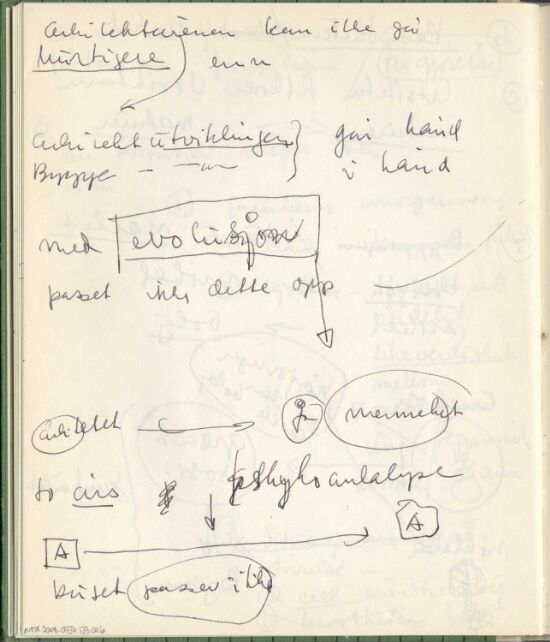 arkitekturenen kan ikke gå
hurtigere enn
arkitektutviklingen } går hånd
Bygge - -"- i hånd
med evolusjon
passet ikke dette opp
arkitektet menneket
to års pshykoanlalyse
A A
huset passer ikke
NMK.2008.0734.135.016